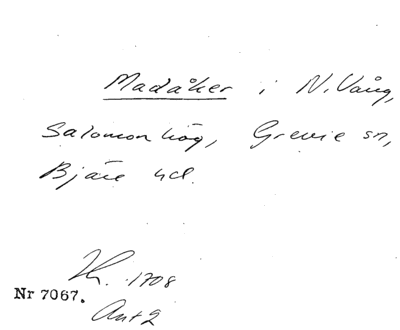 Madåker i N. Vång,
Salomonhög, Grevie sn,
Bjäre hd.
1708
Nr 7067.
Ant 2